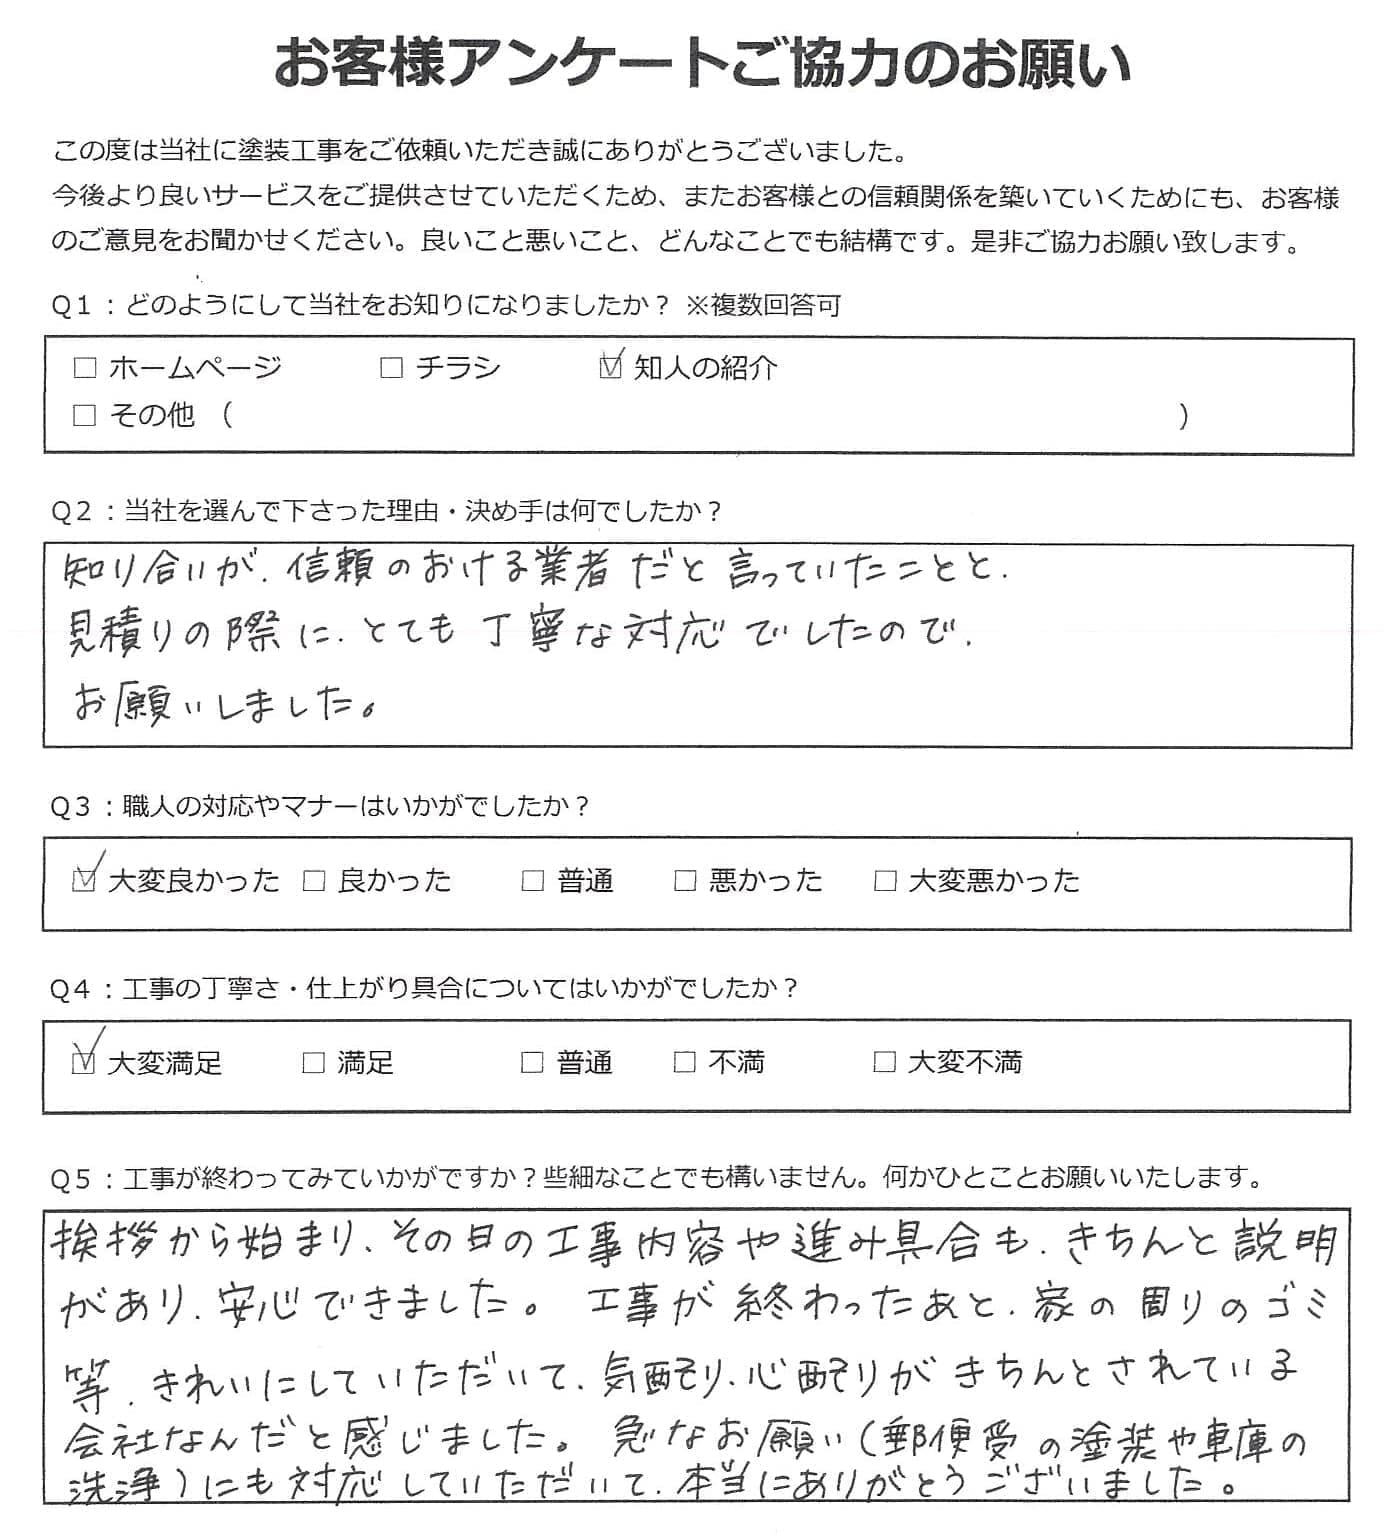 お客様アンケートご協力のお願い
この度は当社に塗装工事をご依頼いただき誠にありがとうございました。
今後より良いサービスをご提供させていただくため、またお客様との信頼関係を築いていくためにも、お客様
のご意見をお聞かせください。良いこと悪いこと、どんなことでも結構です。是非ご協力お願い致します。
Q1：どのようにして当社をお知りになりましたか？ ※複数回答可
□ ホームページ □ チラシ ☑ 知人の紹介
□ その他 （ ）
Q2：当社を選んで下さった理由・決め手は何でしたか？
知り合いが、信頼のおける業者だと言っていたことと、
見積りの際に、とても丁寧な対応でしたので、
お願いしました。
Q3：職人の対応やマナーはいかがでしたか？
☑ 大変良かった □ 良かった □ 普通 □ 悪かった □ 大変悪かった
Q4：工事の丁寧さ・仕上がり具合についてはいかがでしたか？
☑ 大変満足 □ 満足 □ 普通 □ 不満 □ 大変不満
Q5：工事が終わってみていかがですか？些細なことでも構いません。何かひとことお願いいたします。
挨拶から始まり、その日の工事内容や進み具合も、きちんと説明
があり、安心できました。 工事が終わったあと、家の周りのゴミ
等、きれいにしていただいて、気配り、心配りがきちんとされている
会社なんだと感じました。 急なお願い（郵便受の塗装や車庫の
洗浄）にも対応していただいて、本当にありがとうございました。